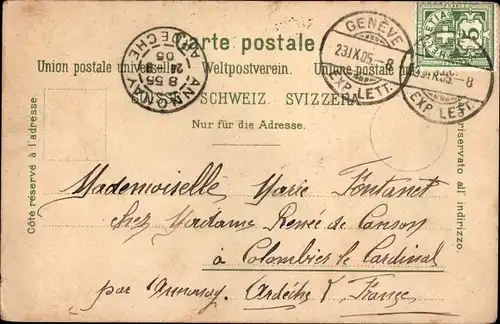 Carte postale
Union postale universelle. Weltpostverein. Unione postale
SCHWEIZ. SVIZZERA.
Nur für die Adresse.
Côté réservé à l'adresse
riservato all' indirizzo.
GENÈVE
23 IX 05 - 8
EXP. LETT.
EXP. LETT.
HELVETIA
5
ANNONAY
ARDECHE
8 55
24 9
05
Mademoiselle Marie Fontanet
chez Madame Renée de Canson
à Colombier le Cardinal
par Annonay. Ardèche France